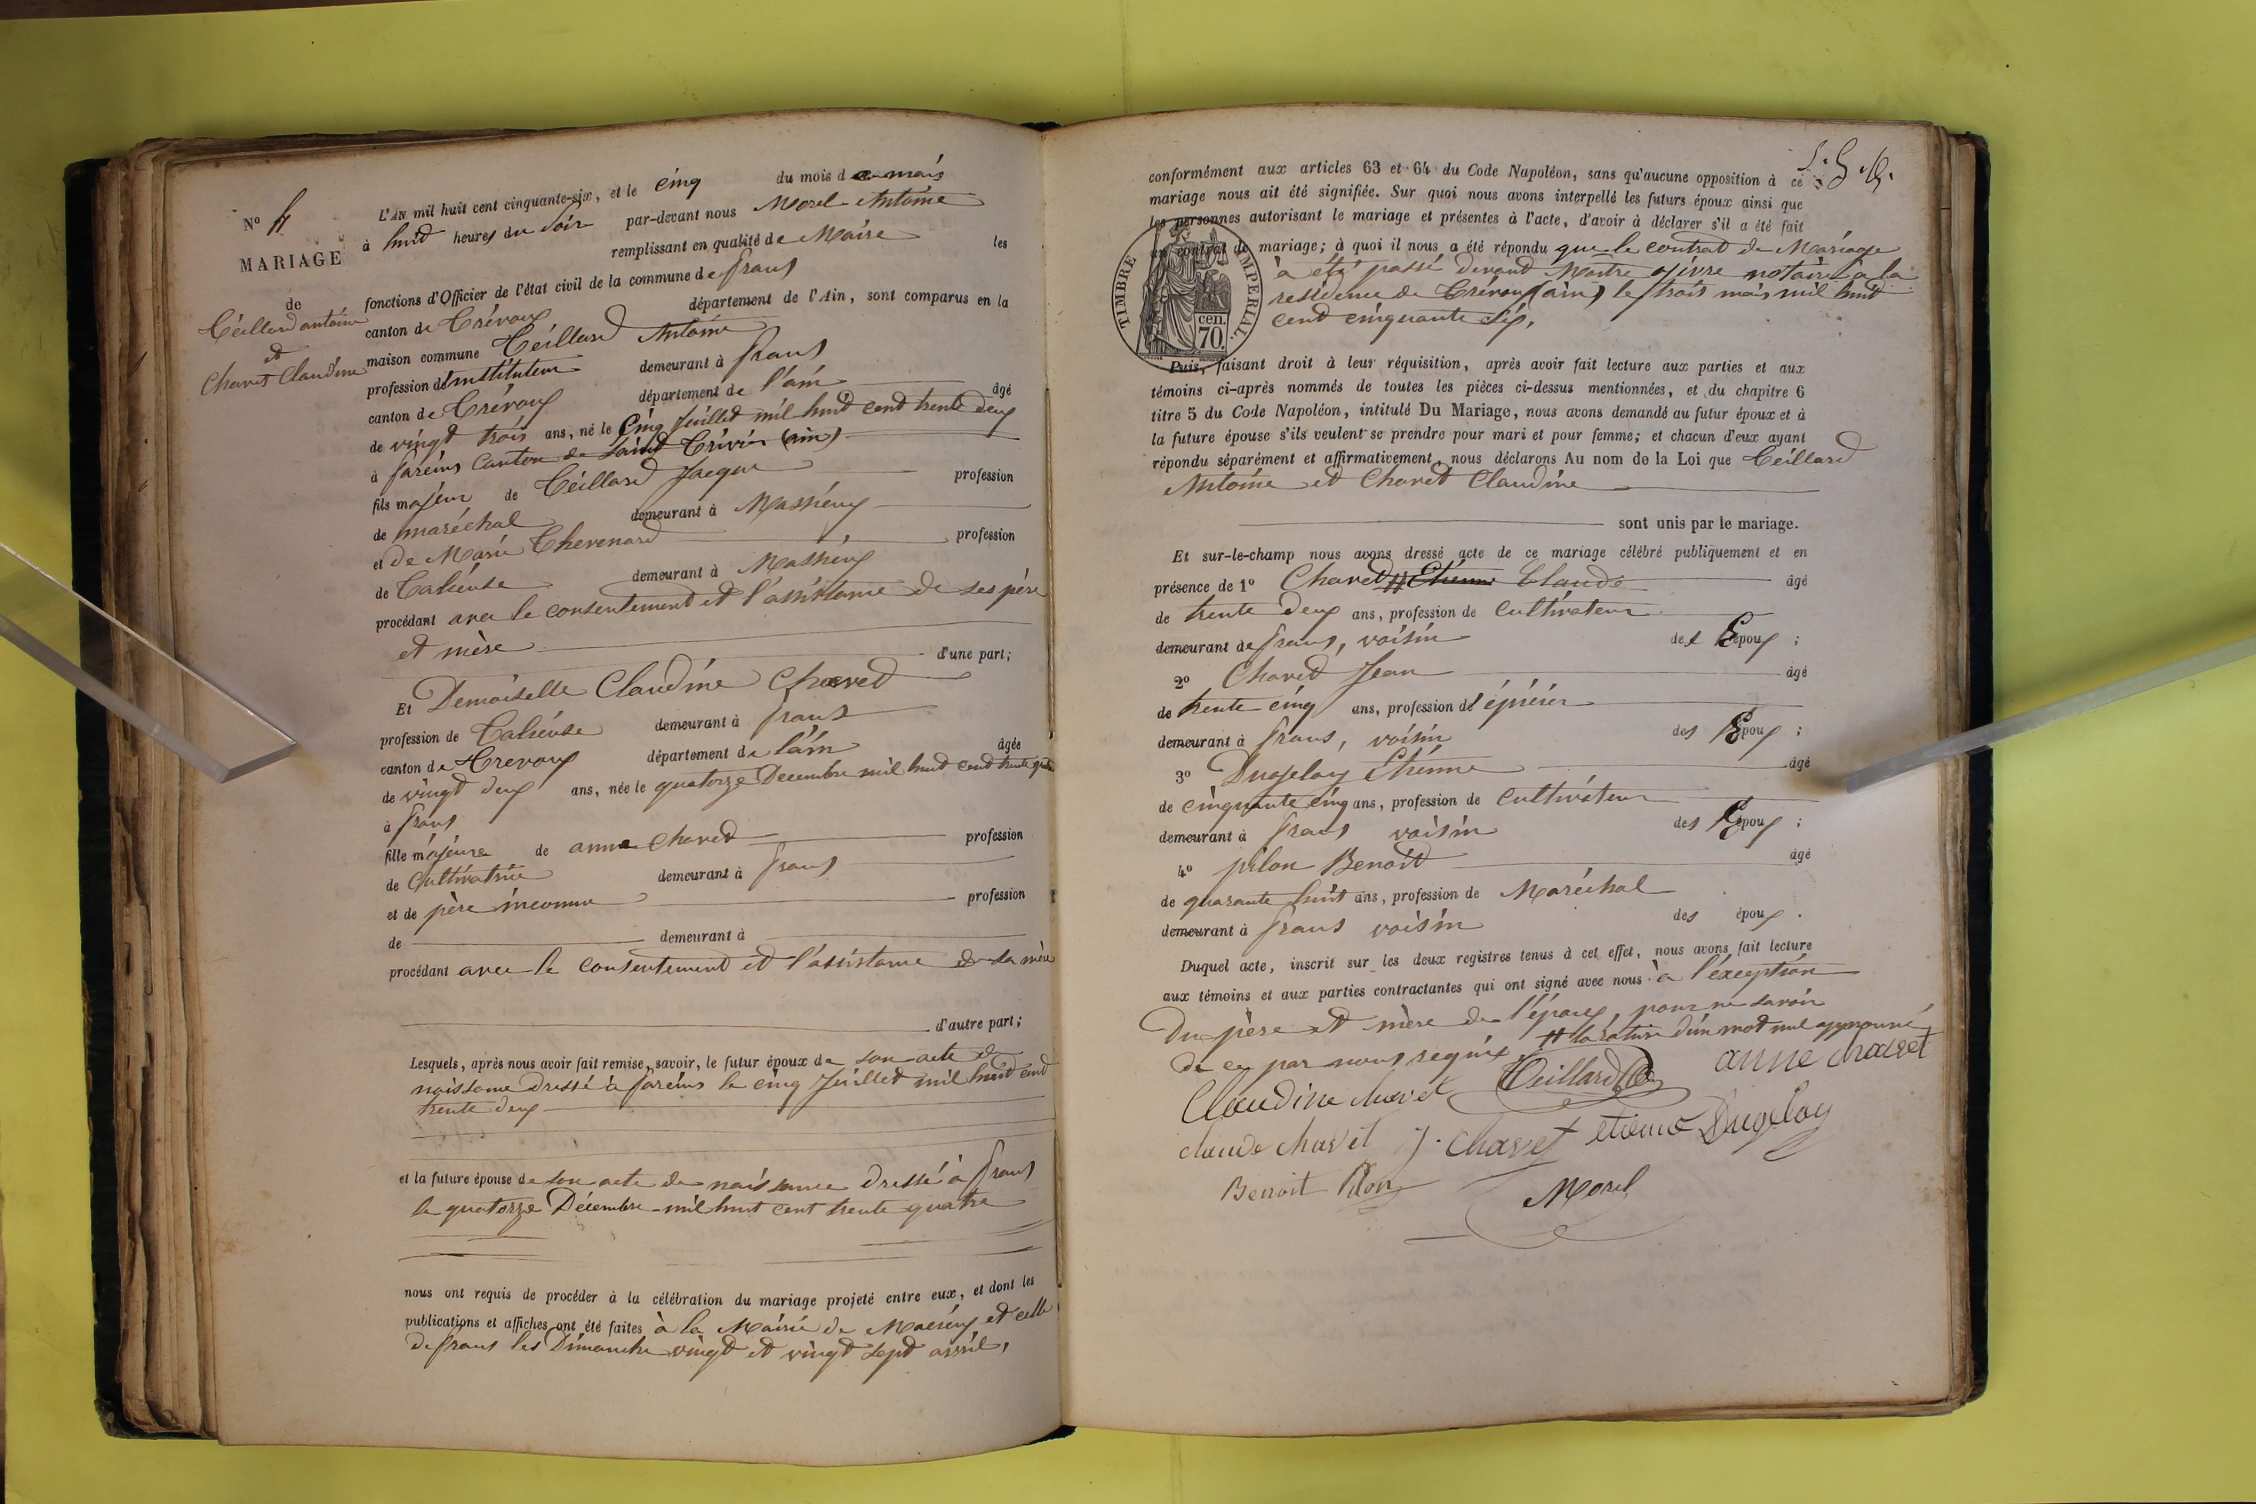 N° 4
MARIAGE
de
Teillard antoine
et
Chavet Claudine
L'AN mil huit cent cinquante-six, et le cinq du mois de mais
à huit heures du soir par-devant nous Morel Antoine
remplissant en qualité de Maire les
fonctions d'Officier de l'état civil de la commune de frans
canton de Trévoux département de l'Ain, sont comparus en la
maison commune Teillard Antoine
profession d'instituteur demeurant à frans
canton de Trévoux département de l'ain âgé
de vingt trois ans, né le cinq juillet mil huit cent trente deux
à fareins canton de Saint Trivier (ain)
fils majeur de Teillard Jacque profession
de maréchal demeurant à Massieux
et de Marie Chevenard profession
de Tailleuse demeurant à Massieux
procédant avec le consentement et l'assistance de ses père
et mère d'une part;
Et Demoiselle Claudine Chavet
profession de Tailleuse demeurant à frans
canton de Trevoux département de l'ain âgée
de vingt deux ans, née le quatorze Decembre mil huit cent trente quatre
à frans
fille majeure de anne Chavet profession
de cultivatrice demeurant à frans
et de père inconnu profession
de demeurant à
procédant avec le consentement et l'assistance de sa mère
d'autre part;
Lesquels, après nous avoir fait remise, savoir, le futur époux de son acte de
naissance dressé à fareins le cinq Juillet mil huit cent
trente deux
et la future épouse de son acte de naissance dressé à frans
le quatorze Décembre mil huit cent trente quatre
nous ont requis de procéder à la célébration du mariage projeté entre eux, et dont les
publications et affiches ont été faites à la Mairie de Massieux et celle
de frans les Dimanche vingt et vingt sept avril,
conformément aux articles 63 et 64 du Code Napoléon, sans qu'aucune opposition à ce
mariage nous ait été signifiée. Sur quoi nous avons interpellé les futurs époux ainsi que
les personnes autorisant le mariage et présentes à l'acte, d'avoir à déclarer s'il a été fait
un contrat de mariage; à quoi il nous a été répondu que le contrat de Mariage
à été passé devant Maître notaire à la
residence de Trévoux (ain) le trois mais mil huit
cent cinquante six,
TIMBRE IMPERIAL
70 cen.
Puis, faisant droit à leur réquisition, après avoir fait lecture aux parties et aux
témoins ci-après nommés de toutes les pièces ci-dessus mentionnées, et du chapitre 6
titre 5 du Code Napoléon, intitulé Du Mariage, nous avons demandé au futur époux et à
la future épouse s'ils veulent se prendre pour mari et pour femme; et chacun d'eux ayant
répondu séparément et affirmativement, nous déclarons Au nom de la Loi que Teillard
Antoine et Chavet Claudine
sont unis par le mariage.
Et sur-le-champ nous avons dressé acte de ce mariage célébré publiquement et en
présence de 1° Chavet # Etienne Claude âgé
de trente deux ans, profession de cultivateur
demeurant de frans, voisin des Epoux ;
2° Chavet Jean âgé
de trente cinq ans, profession d'épicier
demeurant à frans, voisin des Epoux ;
3° Dugelay Etienne âgé
de cinquante cinq ans, profession de cultivateur
demeurant à frans voisin des Epoux ;
4° pilon Benoit âgé
de quarante huit ans, profession de Maréchal
demeurant à frans voisin des époux .
Duquel acte, inscrit sur les deux registres tenus à cet effet, nous avons fait lecture
aux témoins et aux parties contractantes qui ont signé avec nous à l'exception
du père et mère de l'époux pour ne savoir
de ce par nous requis # la rature d'un mot nul approuvé
Claudine chavet Teillard anne chavet
claude chavet J. Chavet etiene Dugelay
Benoit Pilon Morel